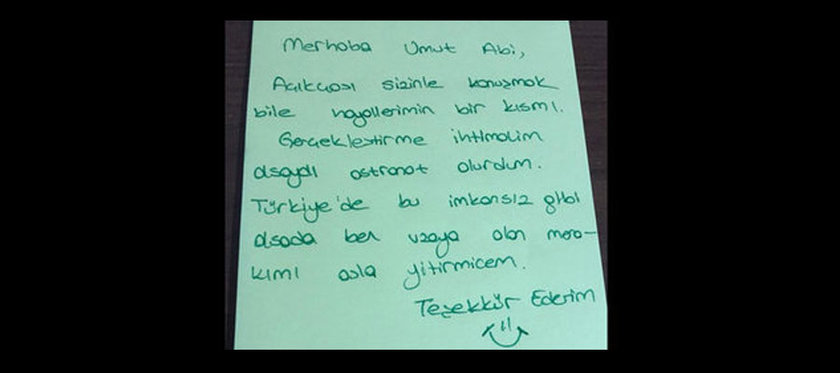 Merhaba Umut Abi,
Açıkçası sizinle konuşmak
bile hayallerimin bir kısmı.
Gerçekleştirme ihtimalim
olsaydı astronot olurdum.
Türkiye'de bu imkansız gibi
olsada ben uzaya olan mera-
kımı asla yitirmicem.
Teşekkür Ederim